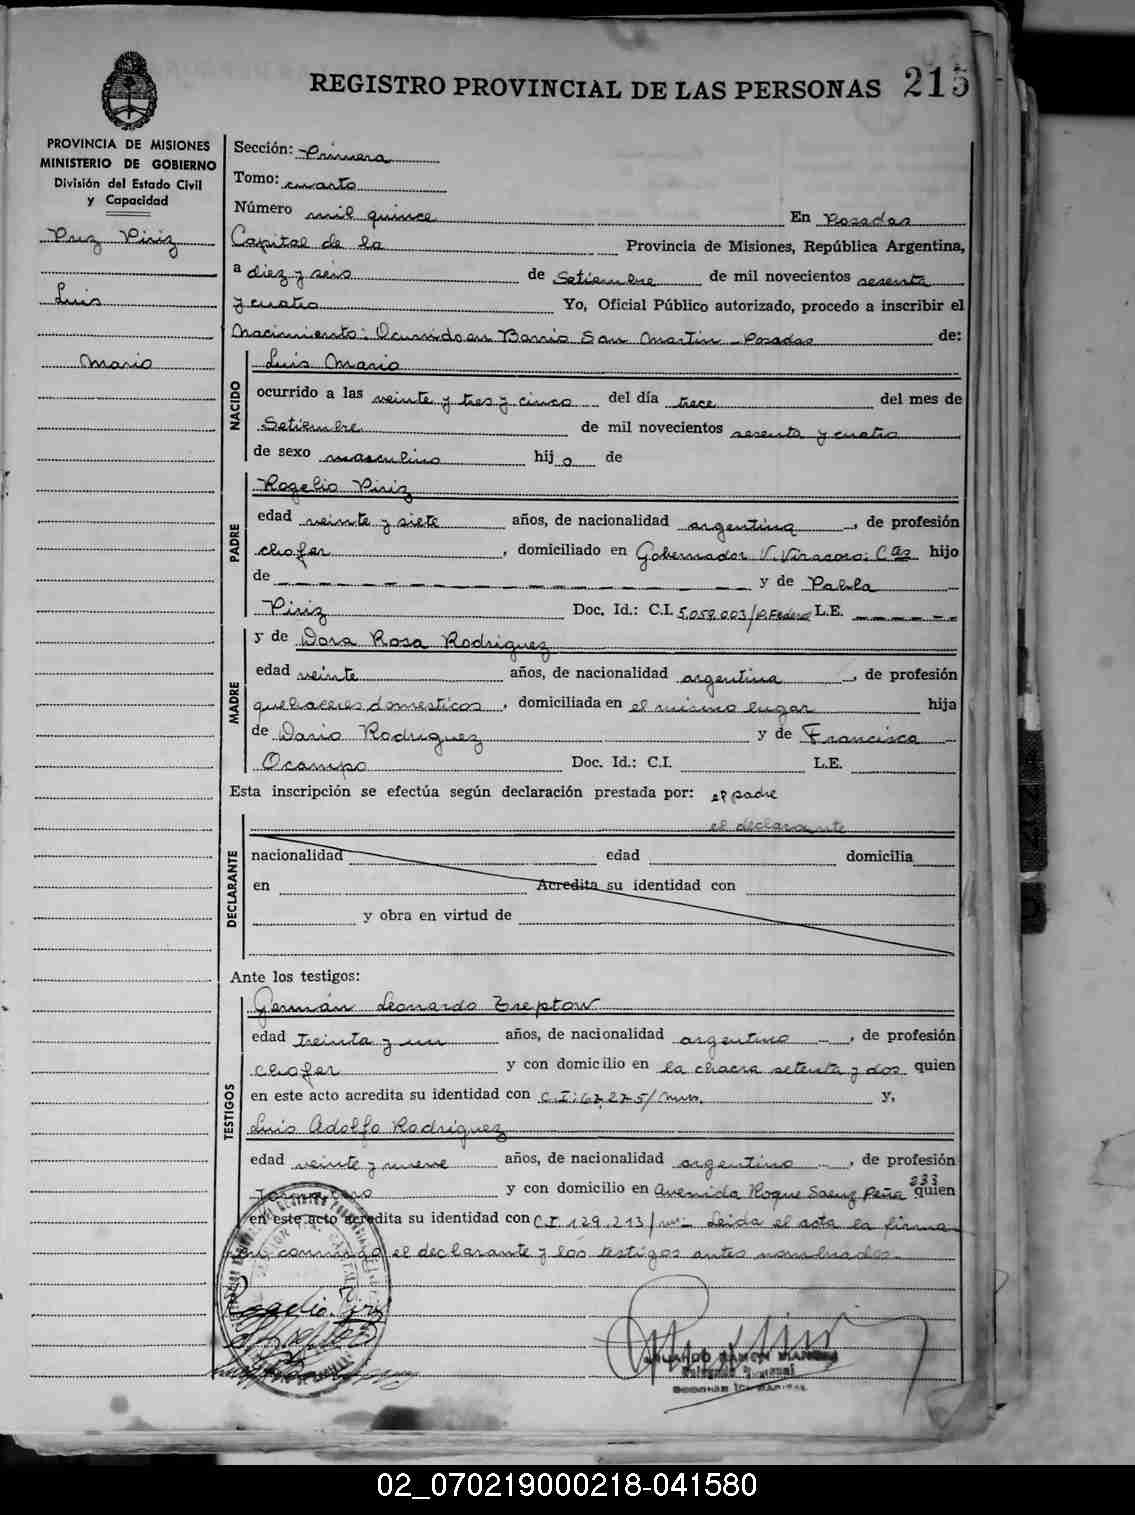 REGISTRO PROVINCIAL DE LAS PERSONAS 215
PROVINCIA DE MISIONES
MINISTERIO DE GOBIERNO
División del Estado Civil
y Capacidad
Piriz
Luis
Mario
Sección: Primera
Tomo: cuarto
Número mil quince En Posadas
Capital de la Provincia de Misiones, República Argentina,
a diez y seis de Setiembre de mil novecientos sesenta
y cuatro Yo, Oficial Público autorizado, procedo a inscribir el
Nacimiento: Ocurrido en Barrio San Martin - Posadas de:
NACIDO
Luis Mario
ocurrido a las veinte y tres y cinco del día trece del mes de
Setiembre de mil novecientos sesenta y cuatro
de sexo masculino hijo de
PADRE
Rogelio Piriz
edad veinte y siete años, de nacionalidad argentina, de profesión
chofer, domiciliado en Gobernador V. Virasoro: Ctes hijo
de — — — — — — — — — — y de Pabla
Piriz Doc. Id.: C.I. 5.059.003/P.Federal L.E. — — — — — —
MADRE
y de Dora Rosa Rodriguez
edad veinte años, de nacionalidad argentina, de profesión
quehaceres domesticos, domiciliada en el mismo lugar hija
de Dario Rodriguez y de Francisca
Ocampo Doc. Id.: C.I. L.E.
Esta inscripción se efectúa según declaración prestada por: el padre
el declarante
DECLARANTE
nacionalidad edad domicilia
en Acredita su identidad con
y obra en virtud de
Ante los testigos:
TESTIGOS
Germán Leonardo Treptow
edad treinta y un años, de nacionalidad argentino, de profesión
chofer y con domicilio en la chacra setenta y dos quien
en este acto acredita su identidad con C.I: 67.275/mns. y,
Luis Adolfo Rodriguez
edad veinte y nueve años, de nacionalidad argentino, de profesión
y con domicilio en Avenida Roque Saenz Peña 233 quien
en este acto acredita su identidad con C.I. 129.213/ Leida el acta la firma
conmigo el declarante y los testigos antes nombrados.
Rogelio Piriz
02_070219000218-041580